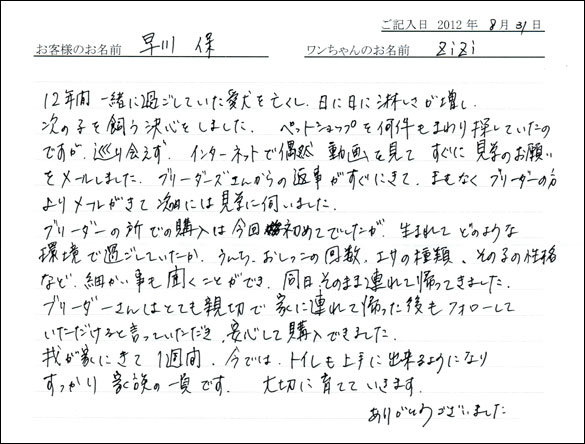 ご記入日 2012年 8月 31日
お客様のお名前 早川 保 ワンちゃんのお名前 ZiZi
12年間 一緒に過ごしていた愛犬を亡くし、日に日に淋しさが増し、
次の子を飼う決心をしました。 ペットショップを何件もまわり探していたの
ですが、巡り会えず、インターネットで偶然 動画を見て すぐに見学のお願い
をメールしました。ブリーダーズさんからの返事がすぐにきて、まもなくブリーダーの方
よりメールがきて 次週には見学に伺いました。
ブリーダーの所での購入は今回初めてでしたが、生まれて どのような
環境で過ごしていたか、うんち、おしっこの回数、エサの種類、その子の性格
など、細かい事も聞くことができ、同日そのまま連れて帰ってきました。
ブリーダーさんはとても親切で 家に連れて帰った後もフォローして
いただけると言っていただき、安心して購入できました。
我が家にきて 1週間、今では、トイレも上手に出来るようになり
すっかり 家族の一員です。 大切に育てていきます。
ありがとうございました